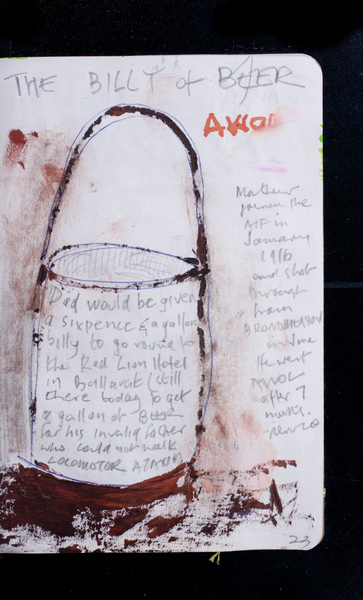 THE BILLY of BEER
AWOL
Mathew
joined the
AIF in
January
1916
and shot
through
from
in June
He went
AWOL
after 7
Dad would be given
a sixpence & a gallon
billy to go round to
the Red Lion Hotel
in Ballarat (still
there today to get
a gallon of BEER
for his invalid father
who could not walk
LOCOMOTOR ATAXIA
23